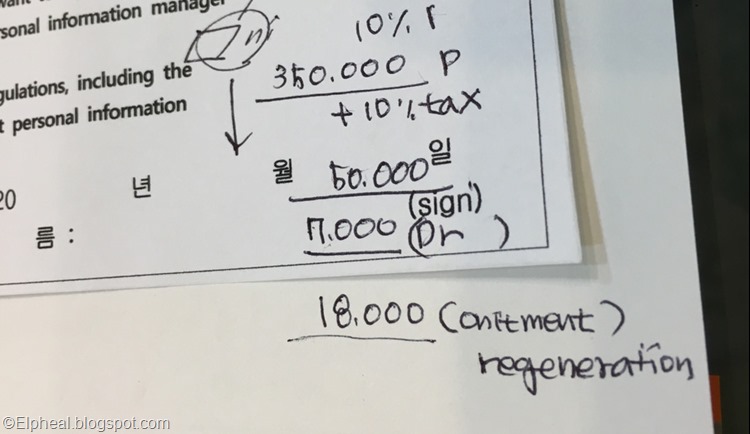 want
rsonal information manager
gulations, including the
t personal information
10% r
350.000 P
+ 10% tax
20 년 월 50.000 일
(sign)
름 : 17.000 (Dr )
18.000 (ointment)
regeneration
©Elpheal.blogspot.com